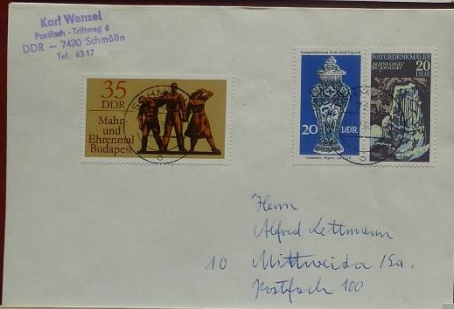 Karl Wenzel
Postfach - Triftweg 6
DDR - 7420 Schmölln
Tel. 6317
35
DDR
Mahn-
und
Ehrenmal
Budapest
20 DDR
NATURDENKMÄLER
20
DDR
Herrn
Alfred Lettmann
10 Mittweida /Sa.
Postfach 100